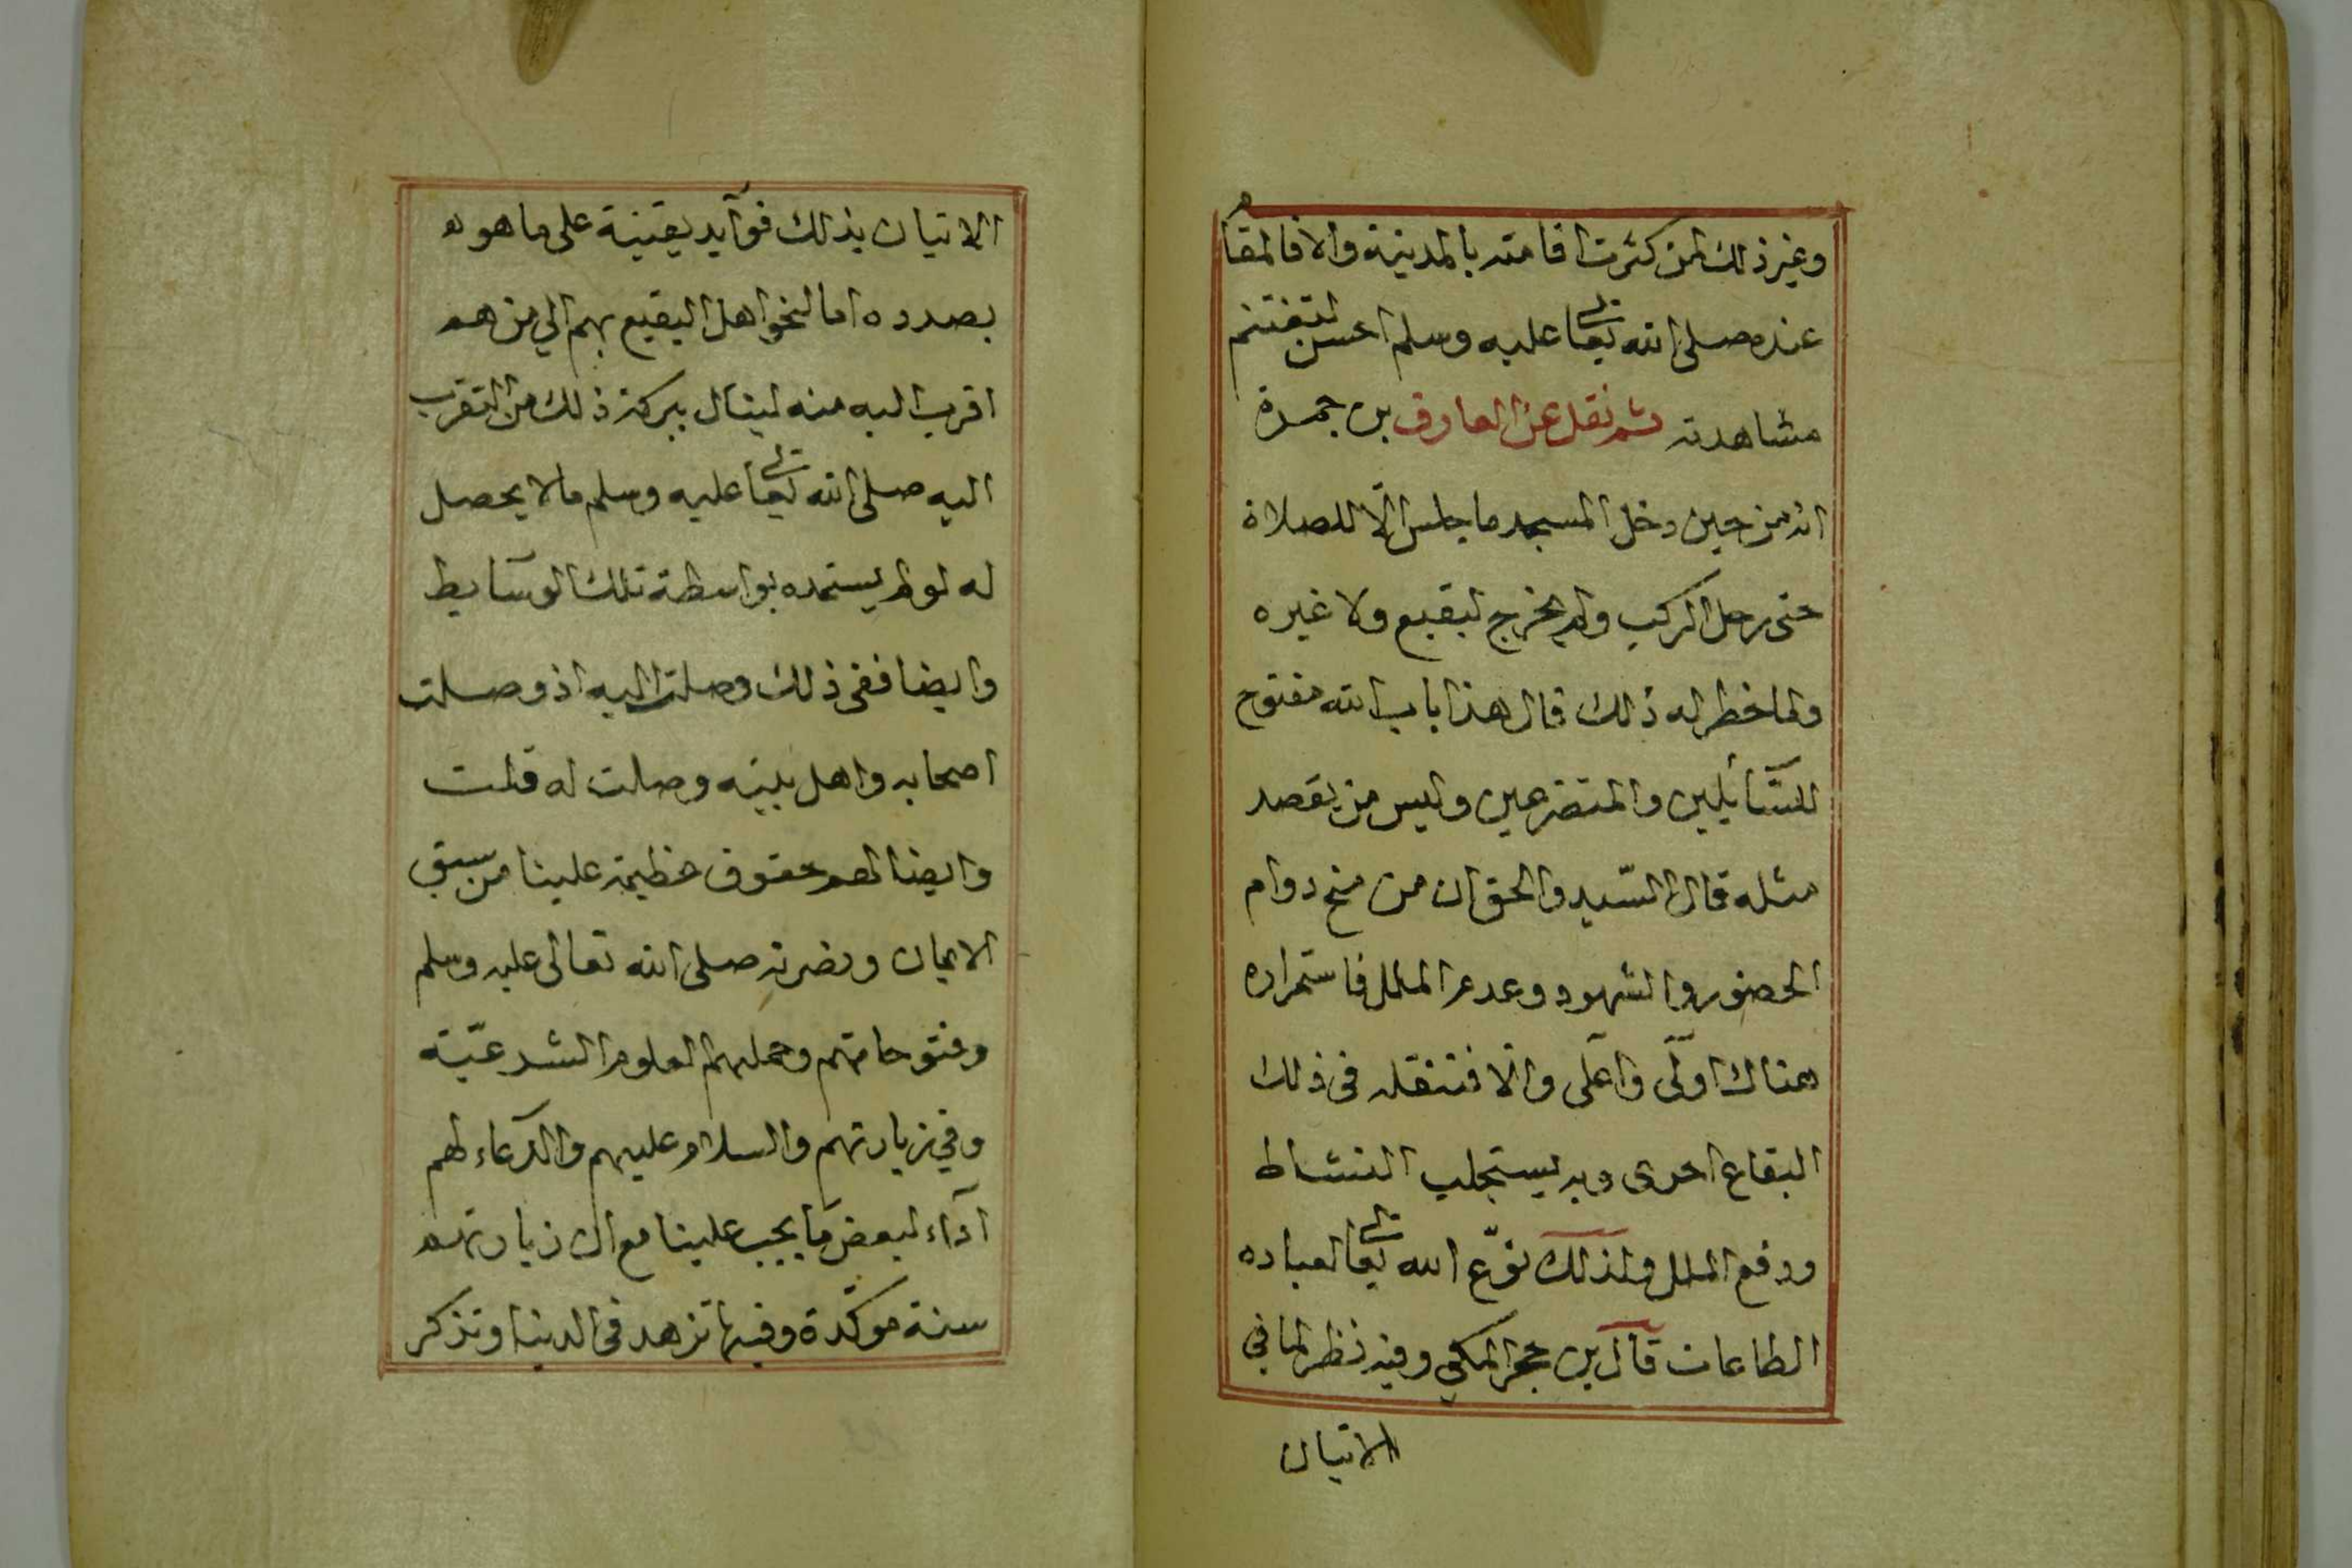 وغير ذلك لمن كثرت اقامته بالمدينة والا فالمقام
عنده صلى الله تعالى عليه وسلم احسن لتغتنم
مشاهدته ثم نقل عن العارف بن جمرة
انه من حين دخل المسجد ما جلس الّا للصلاة
حتى رحل الركب ولم يخرج لبقيع ولا غيره
ولما خطر له ذلك قال هذا باب الله مفتوح
للسّآئلين والمتضرعين وليس من يقصد
مثله قال السّيد والحق ان من منح دوام
الحضور والشهود وعدم الملل فاستمراره
هناك اولى واعلى والّا فتنقله فى ذلك
البقاع احرى وبه يستجلب النشاط
ودفع الملل ولذلك نوّع الله تعالى لعباده
الطاعات قال بن حجر المكي وفيه نظر لما في
الاتيان
الاتيان بذلك فوآيد يقينية على ما هو
بصدده اما لنحو اهل البقيع بهم الي من هم
اقرب اليه منه لينال ببركة ذلك من التقرب
اليه صلى الله تعالى عليه وسلم ما لا يحصل
له لو لم يستمده بواسطة تلك الوسآيط
وايضا ففى ذلك وصلت اليه اذ وصلت
اصحابه واهل بيته وصلت له قلت
وايضا لهم حقوق عظيمة علينا من سبق
الايمان ونصرته صلى الله تعالى عليه وسلم
وفتوحاتهم وحملهم العلوم الشرعيّة
وفي زيارتهم والسلام عليهم والدّعاء لهم
آداء لبعض ما يجب علينا مع ان زيارتهم
سنة موكّدة وفيها تزهد فى الدنيا وتذكر